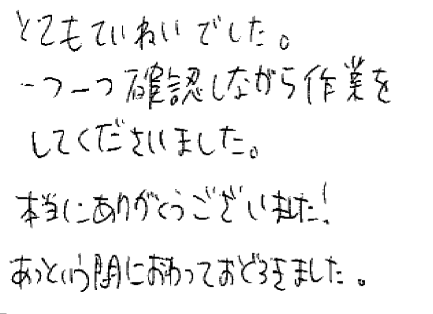 とてもていねいでした。
一つ一つ確認しながら作業を
してくださいました。
本当にありがとうございました！
あっという間におわっておどろきました。